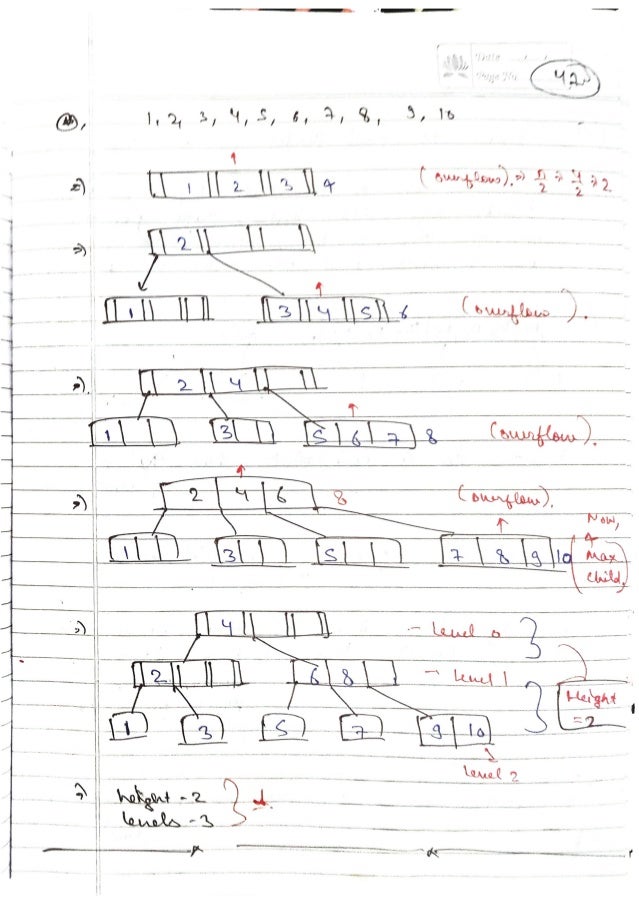 42
1, 2, 3, 4, 5, 6, 7, 8, 9, 10
=) 1 2 3 4 (overflow). => n/2 => 4/2 => 2
=) 2
1 3 4 5 6 (overflow).
=) 2 4
1 3 5 6 7 8 (overflow).
=) 2 4 6 8 (overflow).
1 3 5 7 8 9 10 Now, 4 Max child.
=) 4 - Level 0
2 6 8 - Level 1
Height = 2
1 3 5 7 9 10
Level 2
=) height - 2
levels - 3